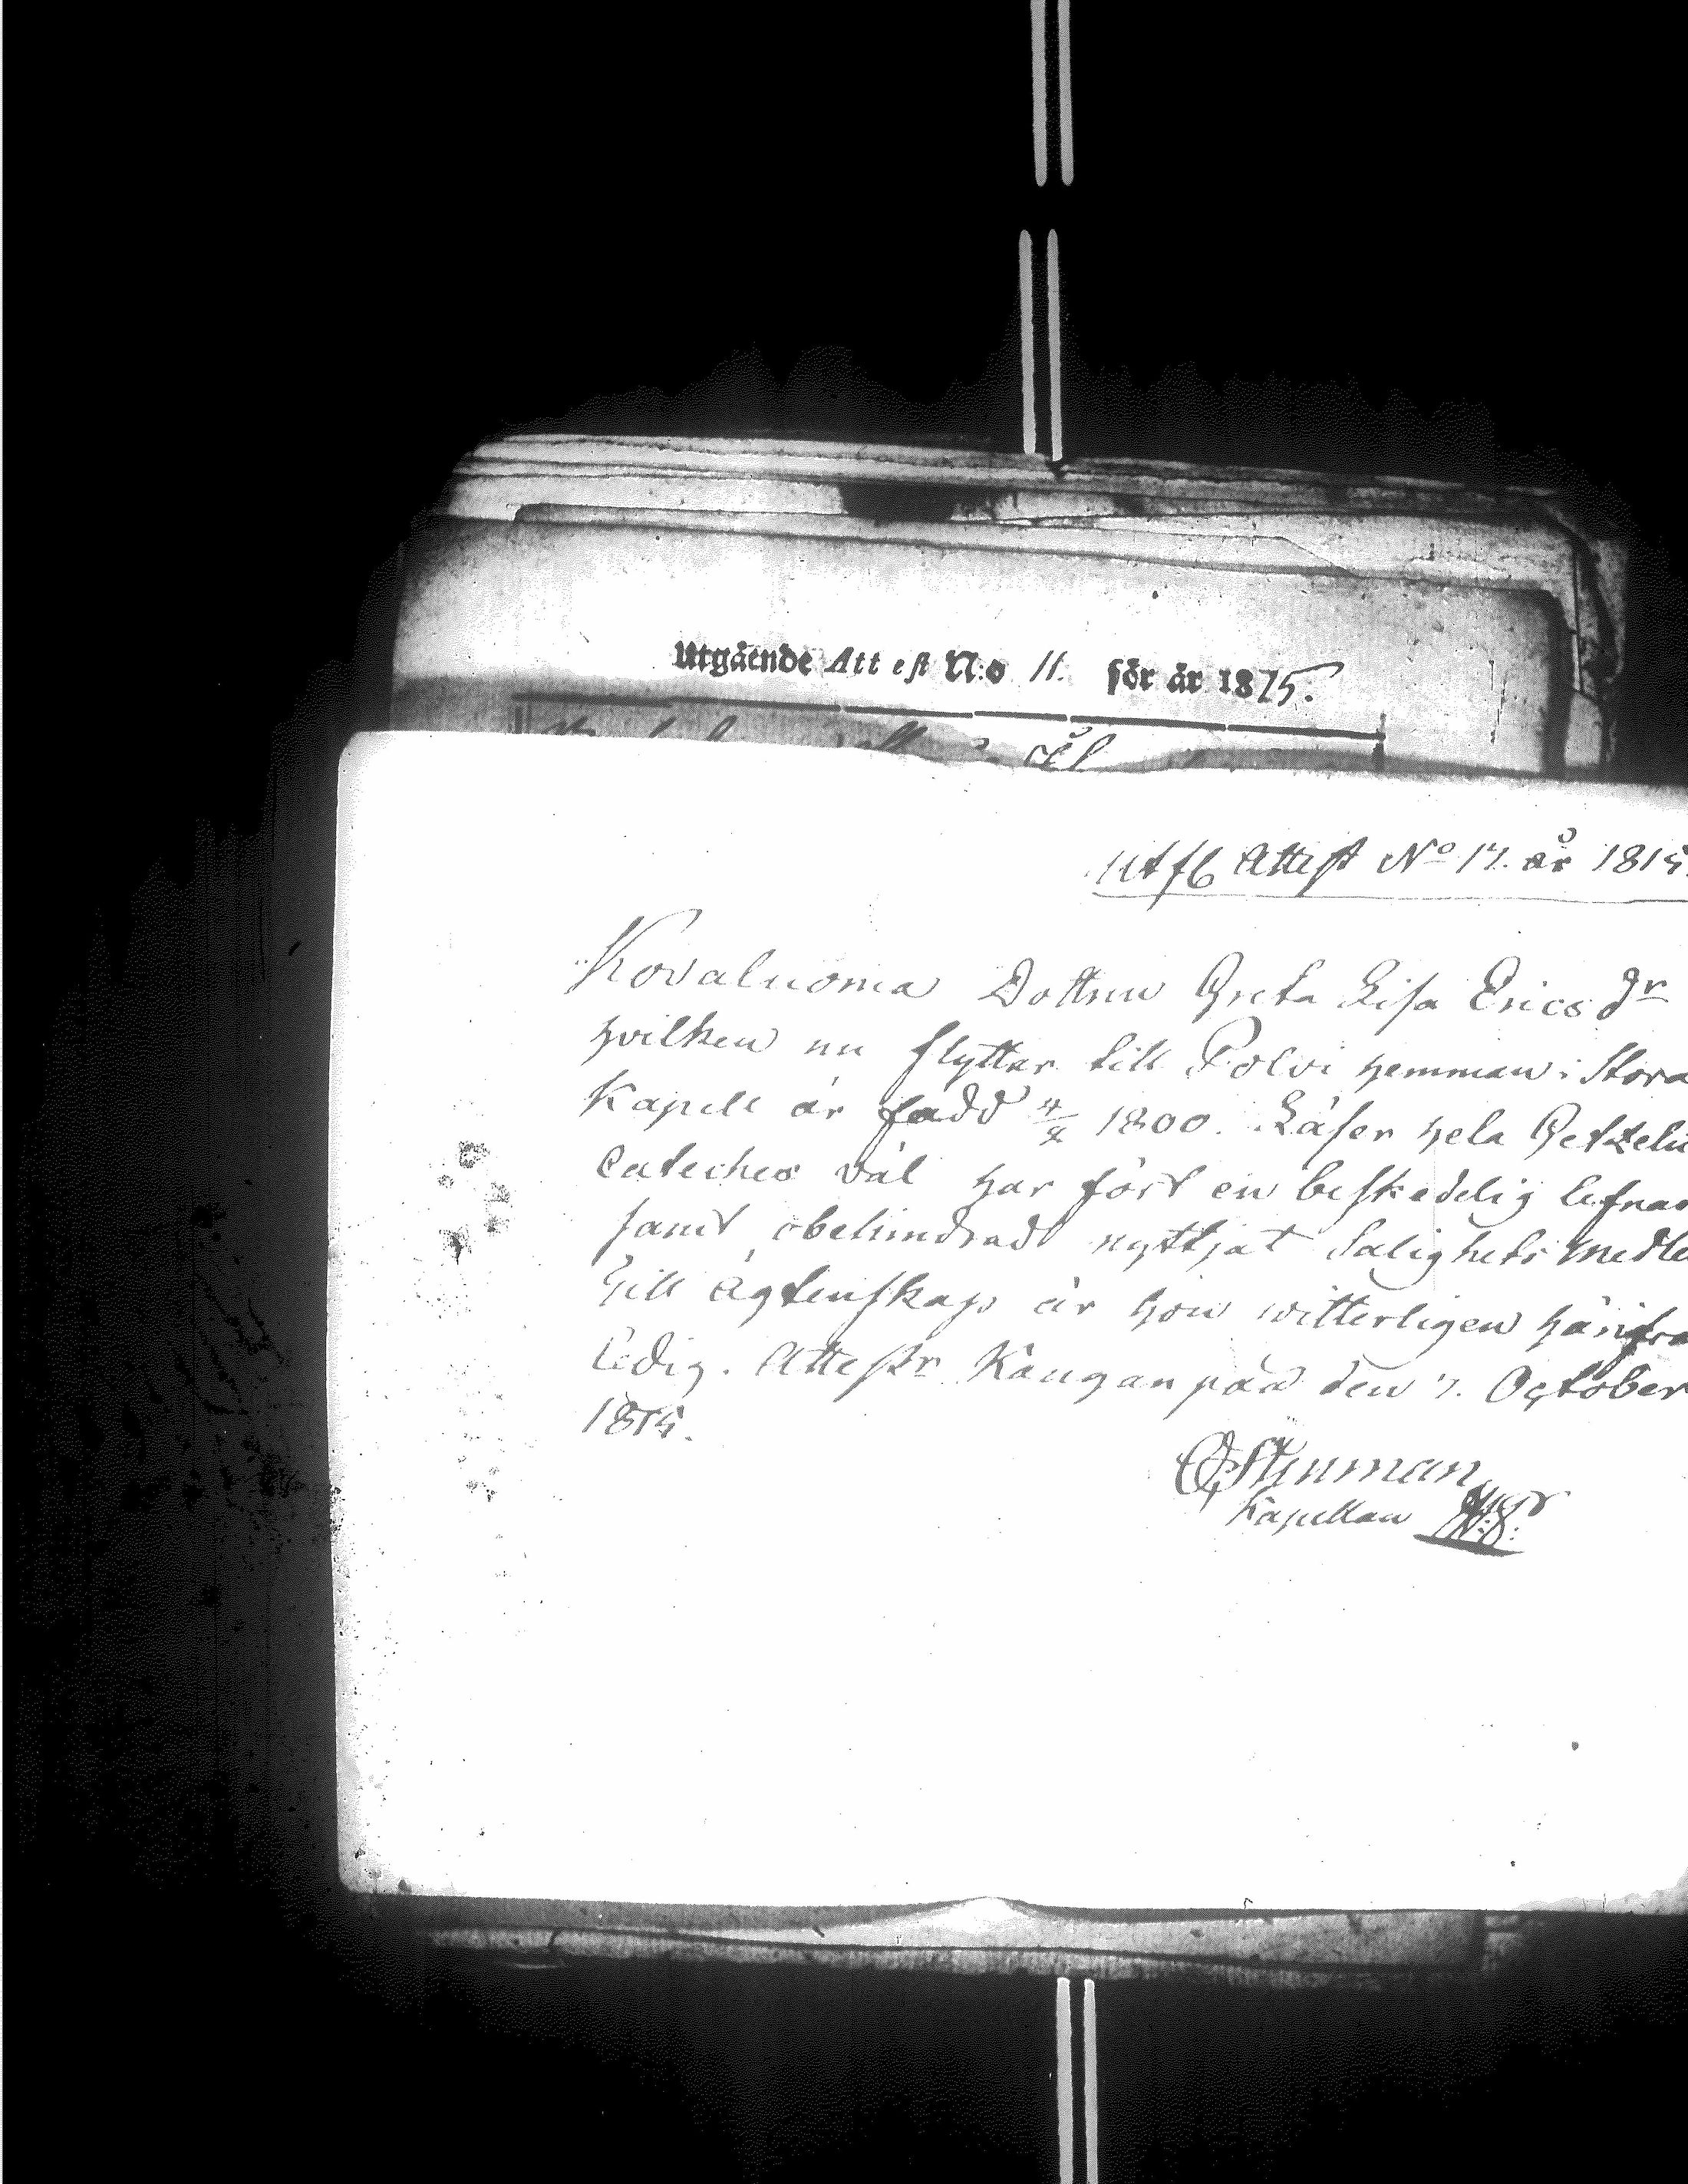 Utgående Attest N:o 11. för år 1875.
Utfl Attest No 17. år 1815.
Kovaluoma Dottren Greta Lisa Ericsdr
hvilken nu flyttar till Polvi hemman i Stora
Kapell är född 1800. Läser hela Getzelii
Cateches väl har fört en beskedelig lefnad
samt obehindrad nyttjat Salighets medle
Till ägtenskap är hon witterligen härifrå
Ledig. Attestr Kanganpää den 7. October
1815.
Stenman
Kapellan